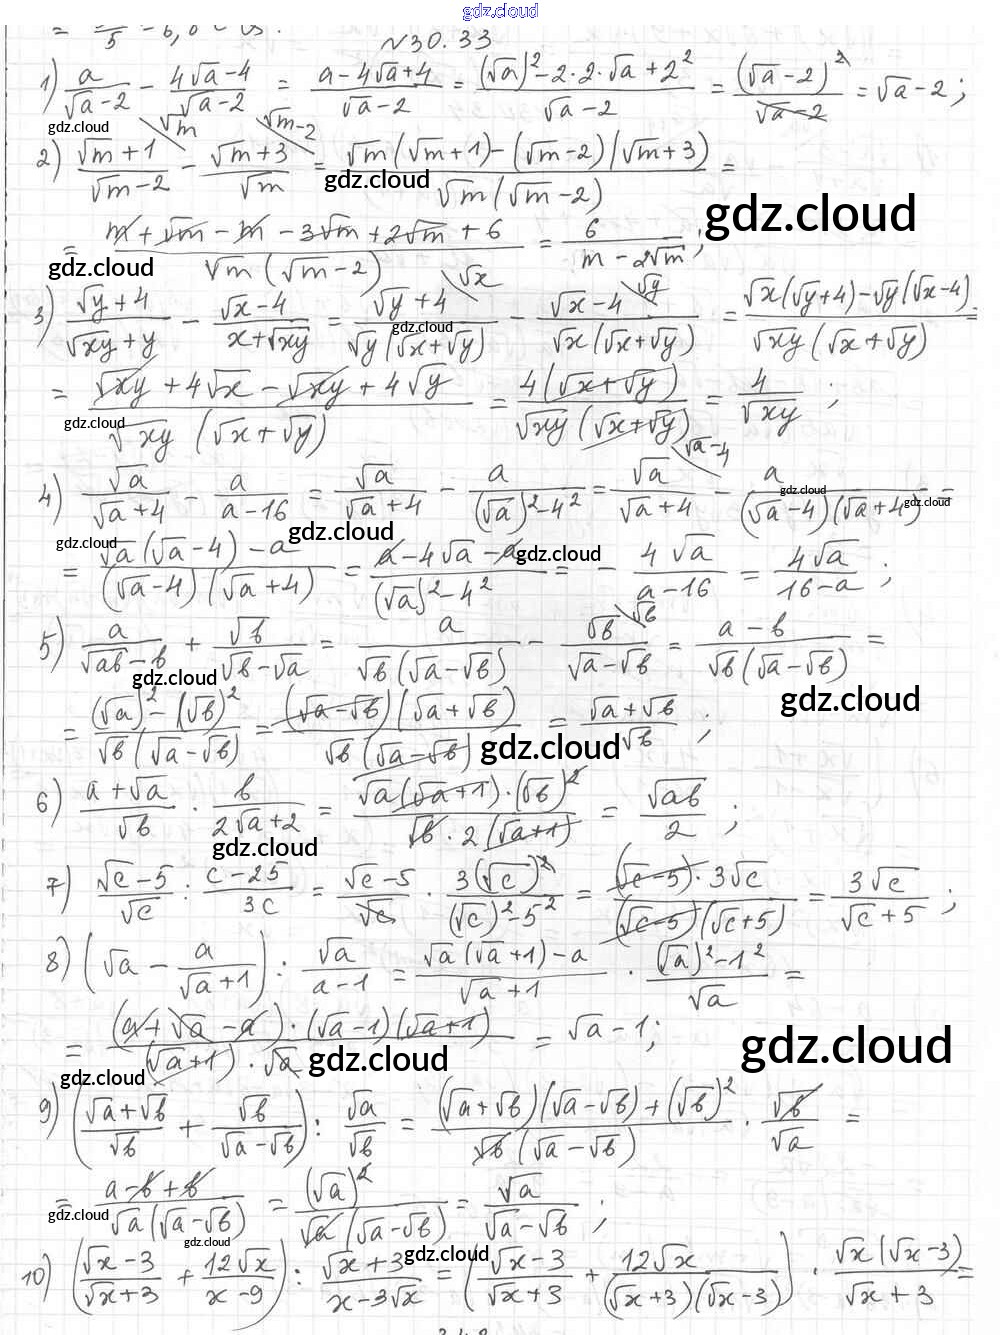 gdz.cloud
№30.33
1) a/(√a-2) - (4√a-4)/(√a-2) = (a-4√a+4)/(√a-2) = ((√a)²-2·2·√a+2²)/(√a-2) = (√a-2)²/(√a-2) = √a-2;
gdz.cloud
2) (√m+1)/(√m-2) \√m - (√m+3)/√m \√m-2 = (√m(√m+1)-(√m-2)(√m+3))/(√m(√m-2)) =
gdz.cloud
gdz.cloud
= (m+√m-m-3√m+2√m+6)/(√m(√m-2)) = 6/(m-2√m);
gdz.cloud
3) (√y+4)/(√xy+y) - (√x-4)/(x+√xy) = (√y+4)/(√y(√x+√y)) \√x - (√x-4)/(√x(√x+√y)) \√y = (√x(√y+4)-√y(√x-4))/(√xy(√x+√y)) =
gdz.cloud
= (√xy+4√x-√xy+4√y)/(√xy(√x+√y)) = 4(√x+√y)/(√xy(√x+√y)) = 4/√xy;
gdz.cloud
4) √a/(√a+4) - a/(a-16) = √a/(√a+4) - a/((√a)²-4²) = √a/(√a+4) \√a-4 - a/((√a-4)(√a+4)) =
gdz.cloud
gdz.cloud
gdz.cloud
= (√a(√a-4)-a)/((√a-4)(√a+4)) = (a-4√a-a)/((√a)²-4²) = - 4√a/(a-16) = 4√a/(16-a);
gdz.cloud
gdz.cloud
5) a/(√ab-b) + √b/(√b-√a) = a/(√b(√a-√b)) - √b/(√a-√b) \√b = (a-b)/(√b(√a-√b)) =
gdz.cloud
gdz.cloud
= ((√a)²-(√b)²)/(√b(√a-√b)) = (√a-√b)(√a+√b)/(√b(√a-√b)) = (√a+√b)/√b;
gdz.cloud
6) (a+√a)/√b · b/(2√a+2) = √a(√a+1)·(√b)²/(√b·2(√a+1)) = √ab/2;
gdz.cloud
7) (√c-5)/√c : (c-25)/3c = (√c-5)/√c · 3(√c)²/((√c)²-5²) = (√c-5)·3√c/((√c-5)(√c+5)) = 3√c/(√c+5);
8) (√a - a/(√a+1)) : √a/(a-1) = (√a(√a+1)-a)/(√a+1) · ((√a)²-1²)/√a =
= (a+√a-a)·(√a-1)(√a+1)/((√a+1)·√a) = √a-1;
gdz.cloud
gdz.cloud
gdz.cloud
9) ((√a+√b)/√b + √b/(√a-√b)) : √a/√b = ((√a+√b)(√a-√b)+(√b)²)/(√b(√a-√b)) · √b/√a =
= (a-b+b)/(√a(√a-√b)) = (√a)²/(√a(√a-√b)) = √a/(√a-√b);
gdz.cloud
gdz.cloud
gdz.cloud
10) ((√x-3)/(√x+3) + 12√x/(x-9)) : (√x+3)/(x-3√x) = ((√x-3)/(√x+3) + 12√x/((√x+3)(√x-3))) · √x(√x-3)/(√x+3) =